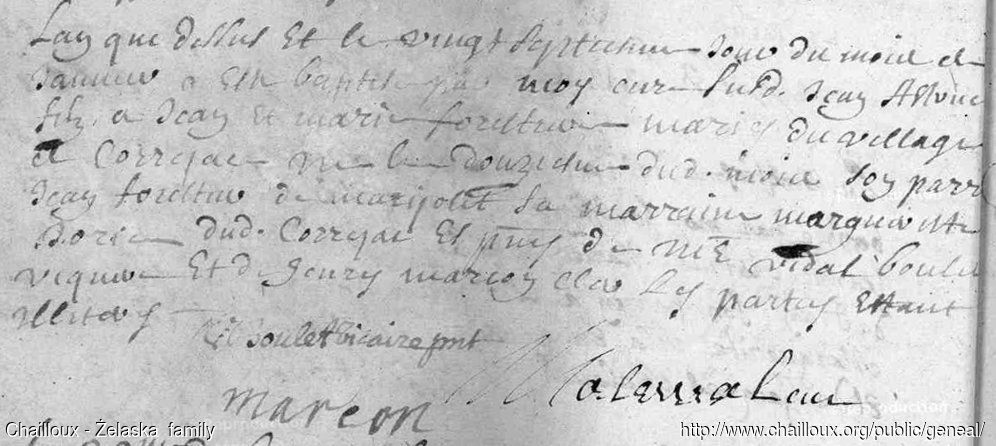 Lan que dessus Et le vingt septiesme Jour du mois de
Janvier a Este baptisé par moy curé susd. Jean
filz a Jean Et marie forestier mariés du village
de Correjac né le douziesme dud. mois son parrin
Jean forestier de marijoulet sa marraine marguerite
dud. Correjac Es pnts de Mre vidal boulet
viquere Et de marcon clerc Les parties Estant
illiteres
boulet vicaire pnt
marcon
Chailloux - Żelaska family
http://www.chailloux.org/public/geneal/